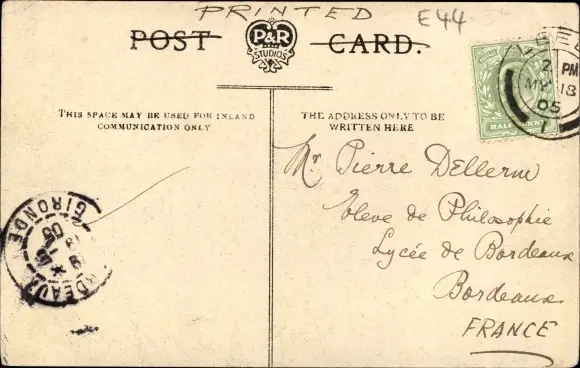 PRINTED
E44
POST CARD.
P&R
STUDIOS
2 PM
MY 18
05
1
HALFPENNY
THIS SPACE MAY BE USED FOR INLAND
COMMUNICATION ONLY
THE ADDRESS ONLY TO BE
WRITTEN HERE
Mr Pierre Dellerm
Eleve de Philosophie
Lycée de Bordeaux
Bordeaux
FRANCE
BORDEAUX
GIRONDE
05